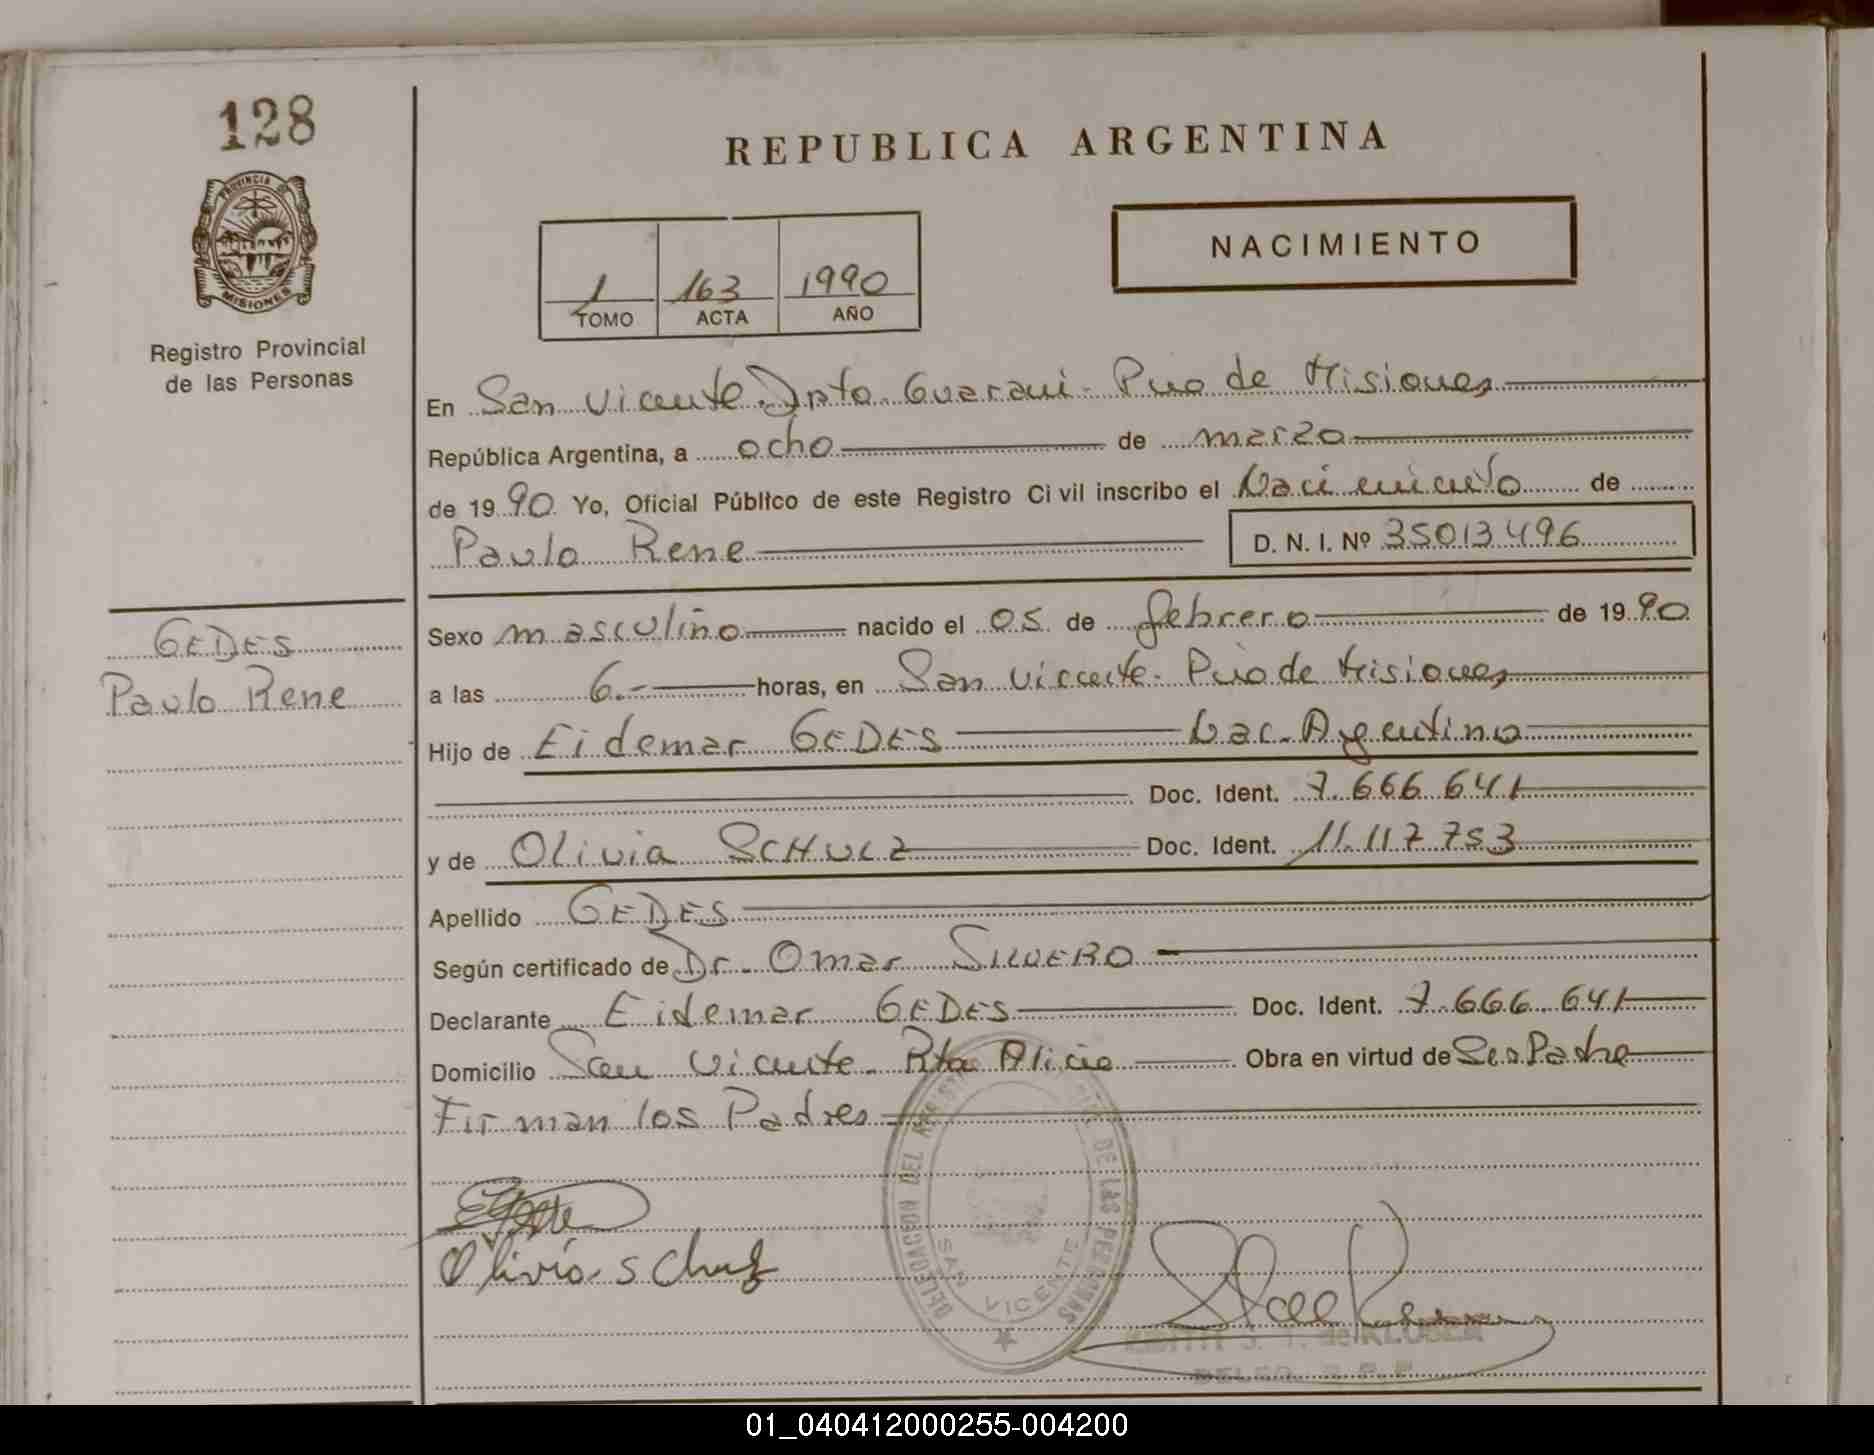 128
PROVINCIA DE
MISIONES
Registro Provincial
de las Personas
REPUBLICA ARGENTINA
NACIMIENTO
1 163 1990
TOMO ACTA AÑO
En San Vicente Dpto. Guarani - Pcia de Misiones
República Argentina, a ocho de marzo
de 1990 Yo, Oficial Público de este Registro Civil inscribo el Nacimiento de
Paulo Rene D. N. I. Nº 35013496
GEDES
Paulo Rene
Sexo masculino nacido el 05 de febrero de 1990
a las 6.- horas, en San Vicente - Pcia de Misiones
Hijo de Eidemar GEDES Nac. Argentino
Doc. Ident. 7.666.641
y de Olivia SCHULZ Doc. Ident. 11.117.753
Apellido GEDES
Según certificado de Dr. Omar SILVERO
Declarante Eidemar GEDES Doc. Ident. 7.666.641
Domicilio San Vicente - Pta Alicia Obra en virtud de Ser Padre
Firman los Padres
Olivia Schulz
DELEGACION DEL DE LAS PERSONAS
SAN VICENTE
de KLUSER
01_040412000255-004200